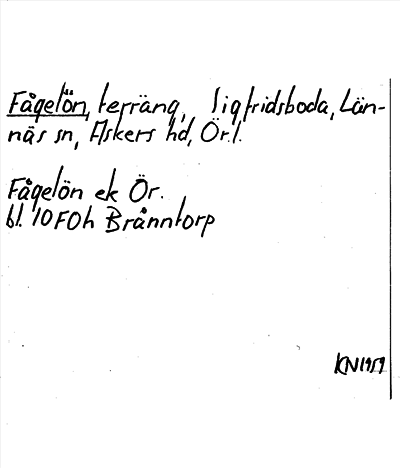 Fågelön, terräng, Sigfridsboda, Län-
näs sn, Askers hd, Ör.l.
Fågelön ek Ör.
bl. 10F0h Bränntorp
KN1959